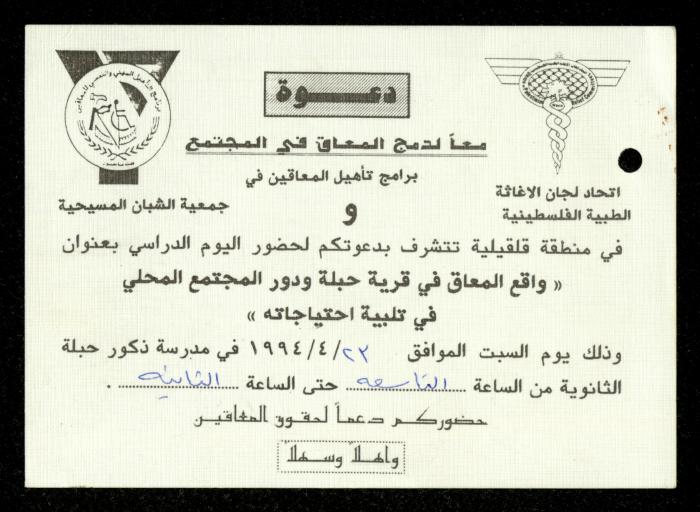 دعـــوة
معاً لدمج المعاق في المجتمع
برامج تأهيل المعاقين في
اتحاد لجان الاغاثة
الطبية الفلسطينية
و
جمعية الشبان المسيحية
في منطقة قلقيلية تتشرف بدعوتكم لحضور اليوم الدراسي بعنوان
« واقع المعاق في قرية حبلة ودور المجتمع المحلي
في تلبية احتياجاته »
وذلك يوم السبت الموافق ٢٣/٤/١٩٩٤ في مدرسة ذكور حبلة
الثانوية من الساعة التاسعة حتى الساعة الثانية .
حضوركم دعماً لحقوق المعاقين
واهلاً وسهلاً